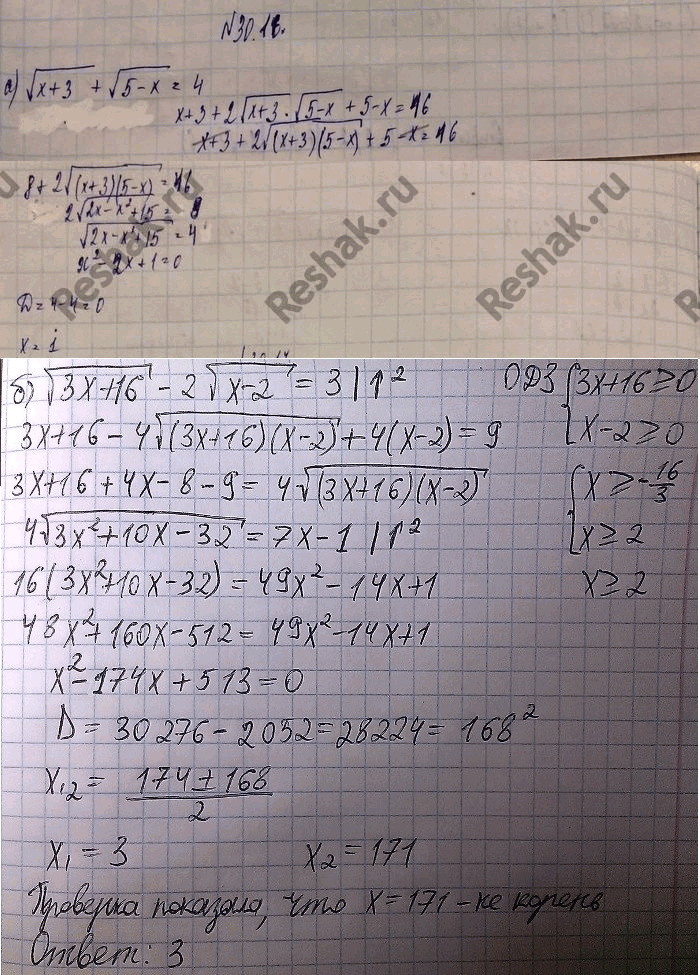 №30.18.
а) √(x+3) + √(5-x) = 4
x+3+2√(x+3)·√(5-x)+5-x=16
x+3+2√((x+3)(5-x))+5-x=16
8+2√((x+3)(5-x))=16
2√(2x-x²+15)=8
√(2x-x²+15)=4
x²-2x+1=0
D=4-4=0
x=1
Reshak.ru Reshak.ru Reshak.ru
б) √(3x+16) - 2√(x-2) = 3 |↑² ОДЗ {3x+16≥0
3x+16-4√((3x+16)(x-2))+4(x-2)=9 x-2≥0
3x+16+4x-8-9=4√((3x+16)(x-2)) {x≥-16/3
4√(3x²+10x-32)=7x-1 |↑² x≥2
16(3x²+10x-32)=49x²-14x+1 x≥2
48x²+160x-512=49x²-14x+1
x²-174x+513=0
D=30276-2052=28224=168²
x₁,₂=(174±168)/2
x₁=3 x₂=171
Проверка показала, что x=171-не корень
Ответ: 3